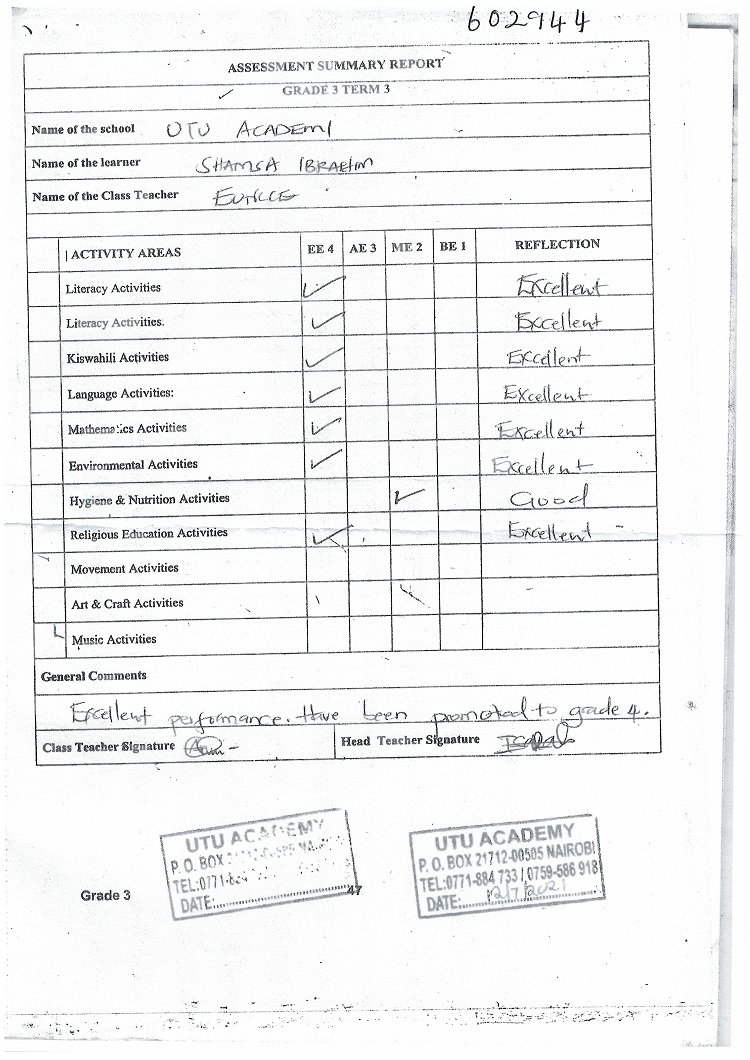 602944
ASSESSMENT SUMMARY REPORT
GRADE 3 TERM 3
Name of the school UTU ACADEMI
Name of the learner SHAMSA IBRAHIM
Name of the Class Teacher EUNICE
ACTIVITY AREAS EE 4 AE 3 ME 2 BE 1 REFLECTION
Literacy Activities ✓ Excellent
Literacy Activities. ✓ Excellent
Kiswahili Activities ✓ Excellent
Language Activities: ✓ Excellent
Mathematics Activities ✓ Excellent
Environmental Activities ✓ Excellent
Hygiene & Nutrition Activities ✓ Good
Religious Education Activities ✓ Excellent
Movement Activities
Art & Craft Activities
Music Activities
General Comments
Excellent performance. Have been promoted to grade 4.
Class Teacher Signature Head Teacher Signature
UTU ACADEMY
P. O. BOX
TEL:0771-884
DATE:
UTU ACADEMY
P. O. BOX 21712-00505 NAIROBI
TEL:0771-884 733 / 0759-586 918
DATE: 12/7/2021
Grade 3
47